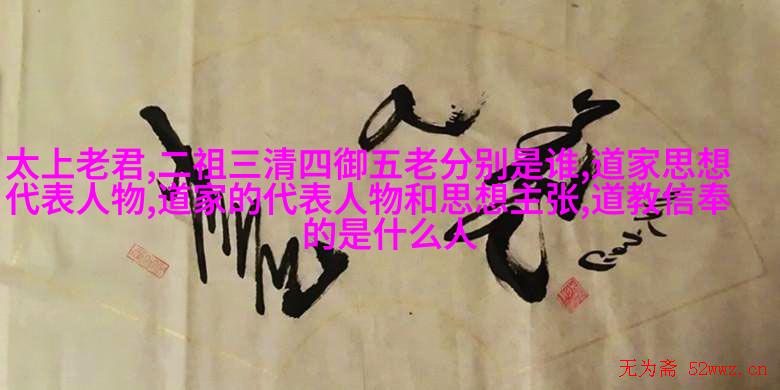 太上老君,二祖三清四御五老分别是谁,道家思想
代表人物,道家的代表人物和思想主张,道教信奉
的是什么人
无为斋 52wwz.cn